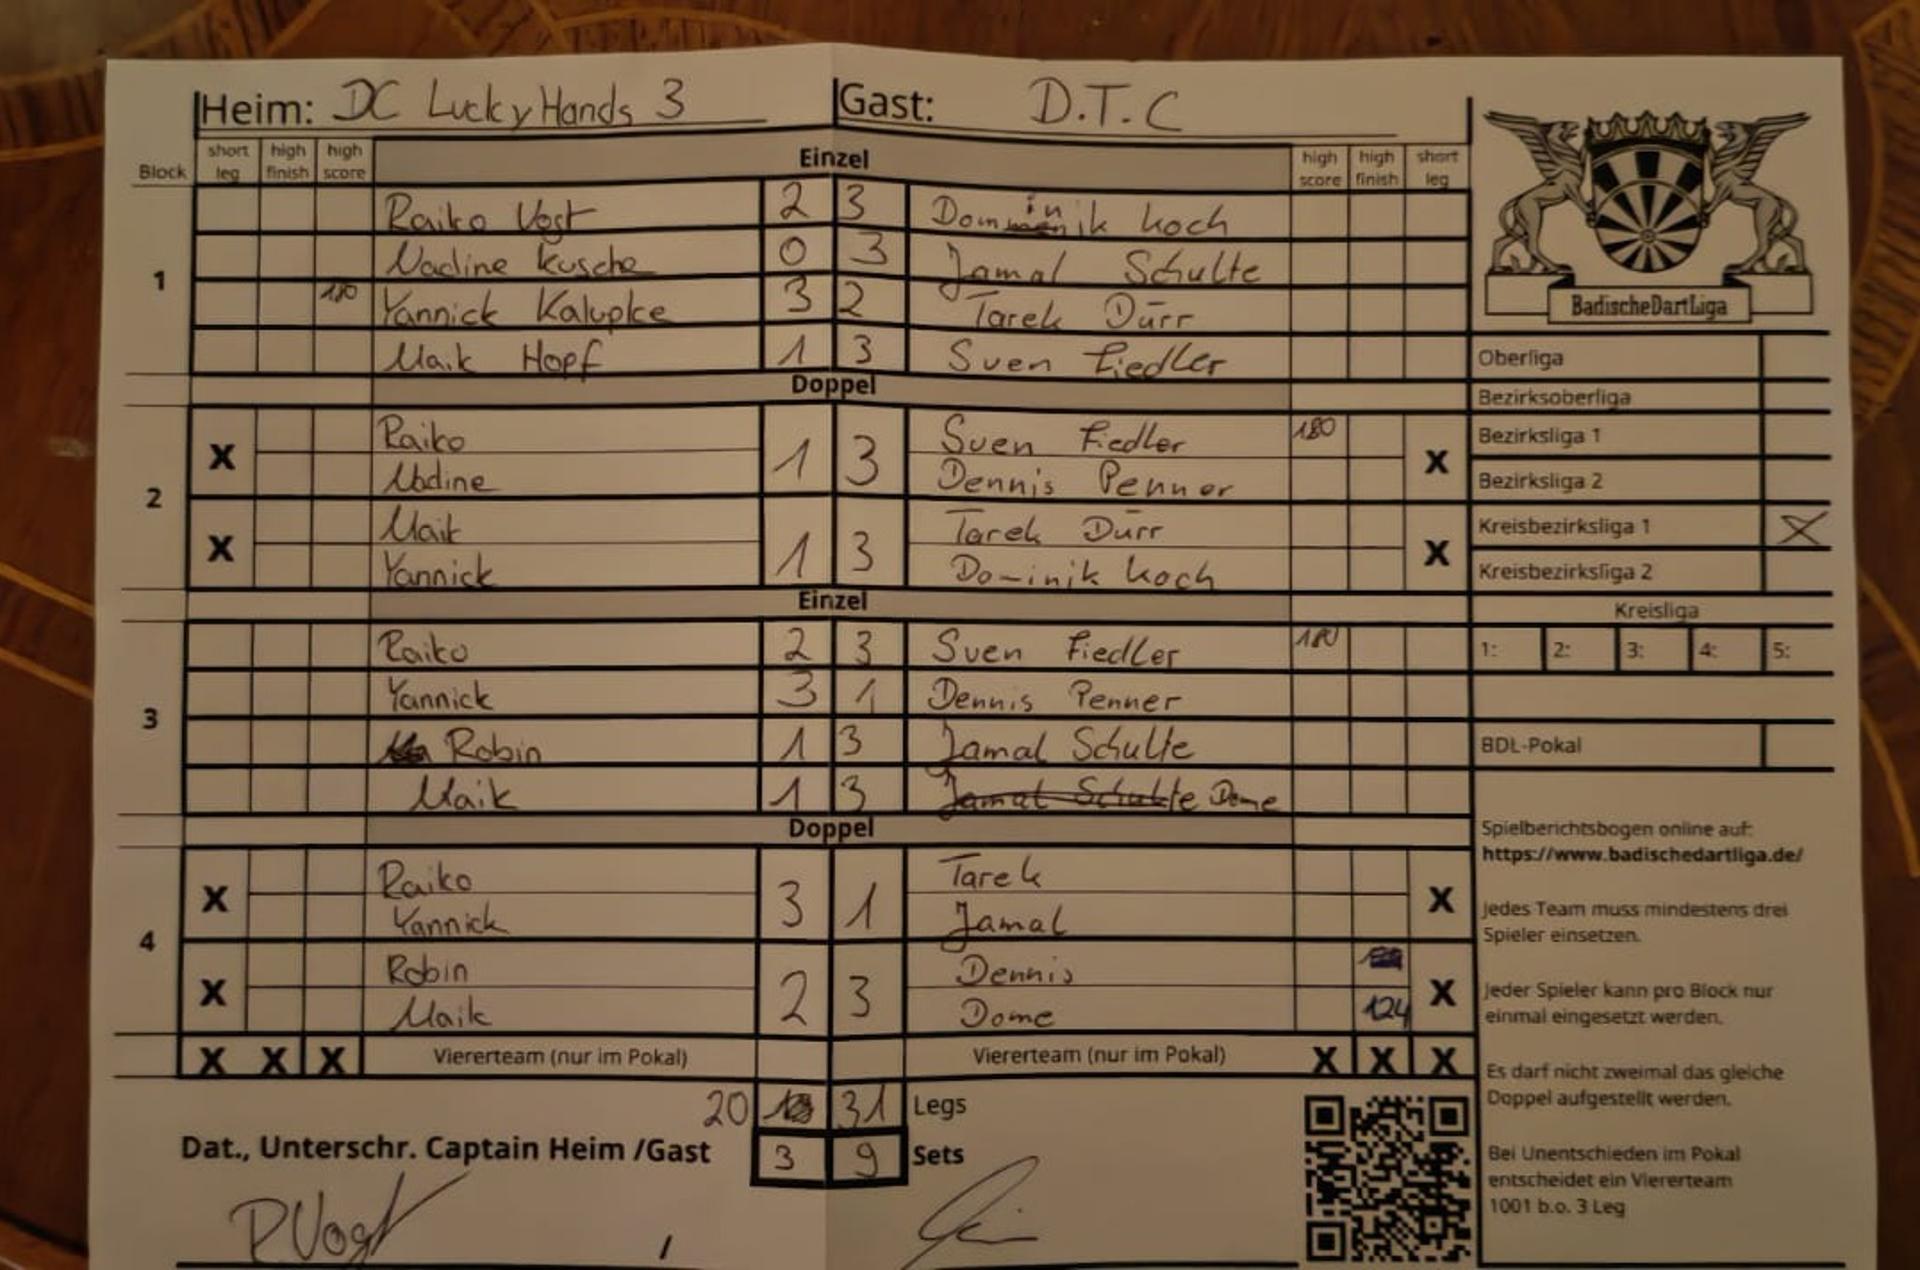 Heim: DC LuckyHands 3 Gast: D.T.C
Block short leg high finish high score Einzel high score high finish short leg
1
Raiko Vogt 2 3 Dominik Koch
Nadine Kusche 0 3 Jamal Schulte
180 Yannick Kalupke 3 2 Tarek Dürr
Maik Hopf 1 3 Sven Fiedler
Doppel
2
X Raiko 1 3 Sven Fiedler 180 X
Nadine Dennis Penner
X Maik 1 3 Tarek Dürr X
Yannick Dominik Koch
Einzel
3
Raiko 2 3 Sven Fiedler 180
Yannick 3 1 Dennis Penner
Robin 1 3 Jamal Schulte
Maik 1 3 Jamal Schulte Dome
Doppel
4
X Raiko 3 1 Tarek X
Yannick Jamal
X Robin 2 3 Dennis X
Maik Dome 124
X X X Viererteam (nur im Pokal) Viererteam (nur im Pokal) X X X
20 31 Legs
Dat., Unterschr. Captain Heim /Gast 3 9 Sets
BadischeDartLiga
Oberliga
Bezirksoberliga
Bezirksliga 1
Bezirksliga 2
Kreisbezirksliga 1 X
Kreisbezirksliga 2
Kreisliga
1: 2: 3: 4: 5:
BDL-Pokal
Spielberichtsbogen online auf:
https://www.badischedartliga.de/
Jedes Team muss mindestens drei
Spieler einsetzen.
Jeder Spieler kann pro Block nur
einmal eingesetzt werden.
Es darf nicht zweimal das gleiche
Doppel aufgestellt werden.
Bei Unentschieden im Pokal
entscheidet ein Viererteam
1001 b.o. 3 Leg